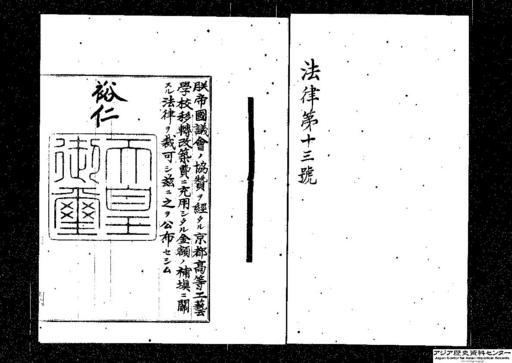 法律第十三號
朕帝國議會ノ協贊ヲ經タル京都高等工藝
學校移轉改築費ニ充用シタル金額ノ補塡ニ關
スル法律ヲ裁可シ玆ニ之ヲ公布セシム
裕仁
天皇
御璽
アジア歴史資料センター
Japan Center for Asian Historical Records